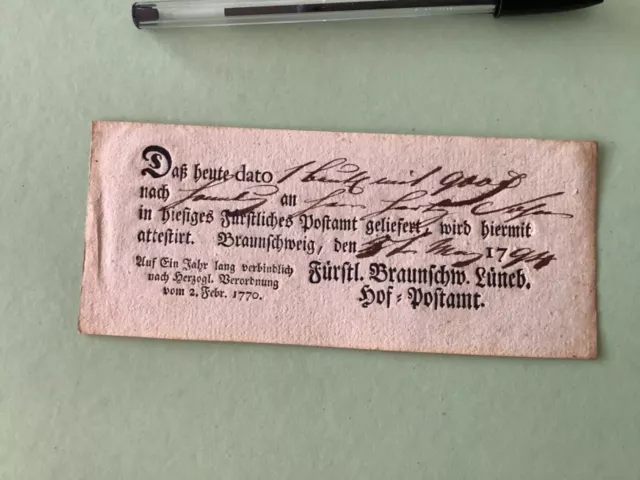 Daß heute dato 1 beutel mit 900
nach an
in hiesiges Fürstliches Postamt geliefert, wird hiermit
attestirt. Braunschweig, den May 1794
Auf Ein Jahr lang verbindlich
nach Herzogl. Verordnung
vom 2. Febr. 1770.
Fürstl. Braunschw. Lüneb.
Hof-Postamt.